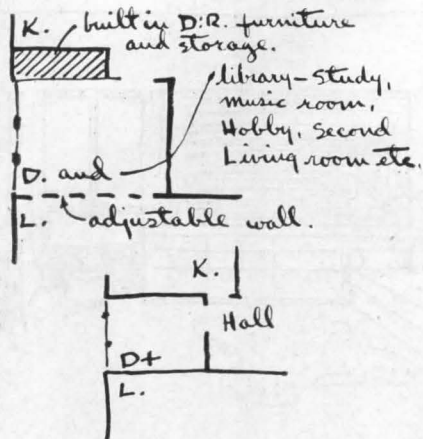 K. built in D.R. furniture
and storage.
library-study,
music room,
Hobby, Second
Living room etc.
D. and
L. adjustable wall.
K.
Hall
D+
L.